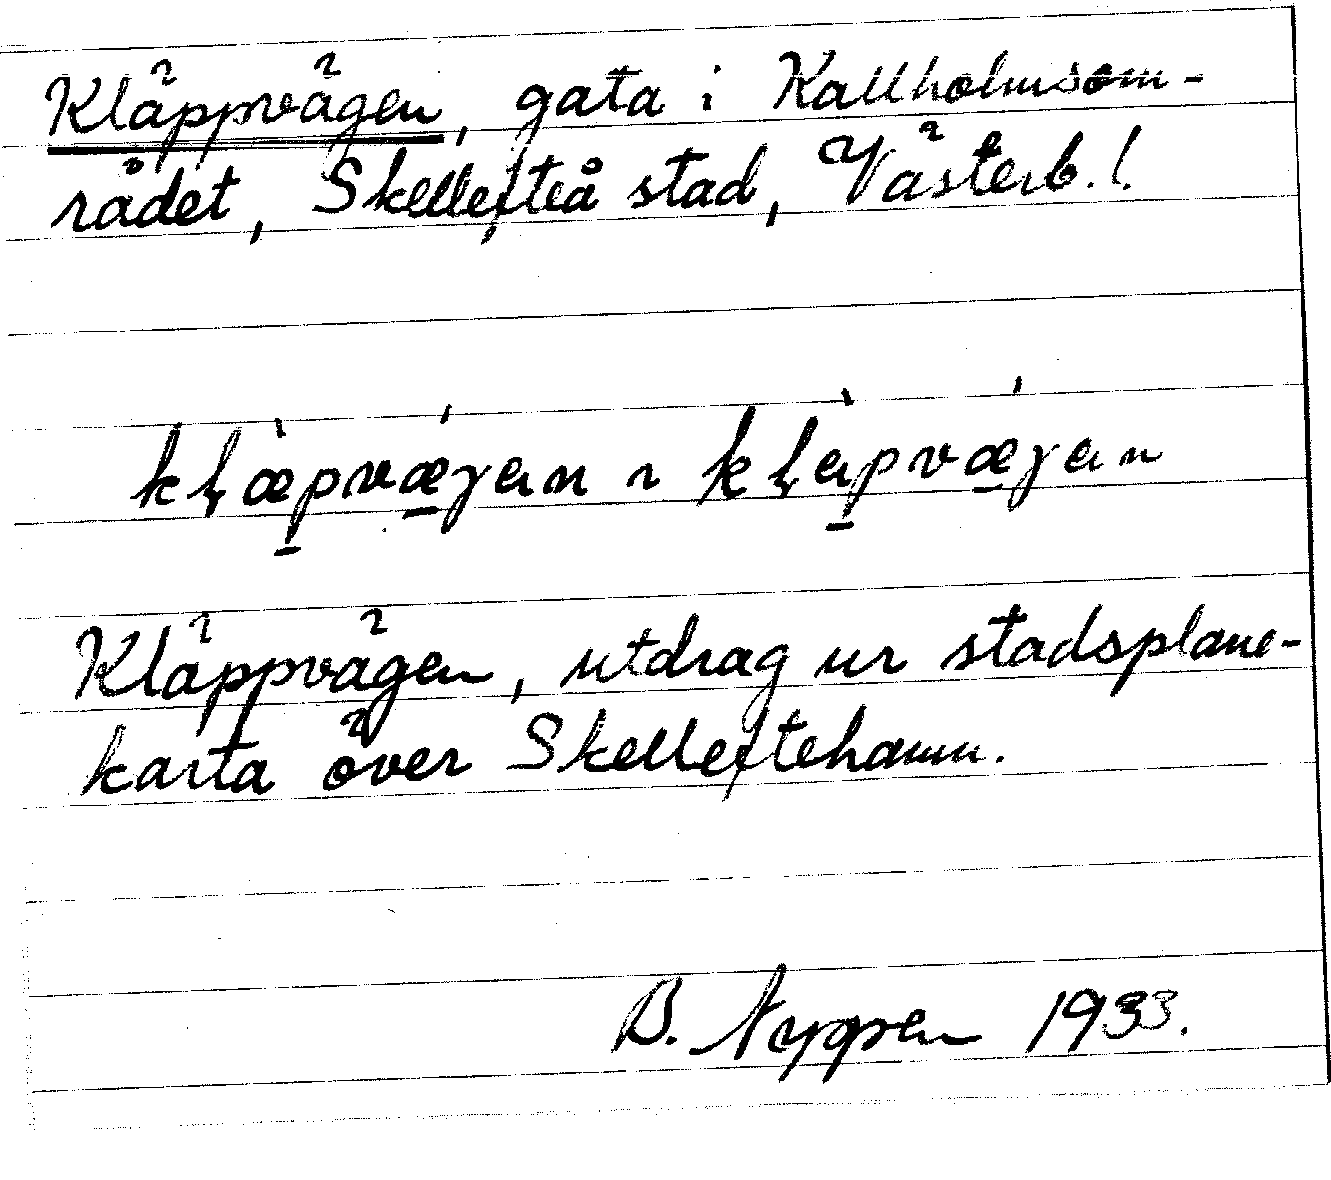 Kläppvägen, gata i Kallholmsom-
rådet, Skellefteå stad, Västerb. l.
kḷæ̀p̠vǽ̠ɣen ~ kḷàp̠vǽ̠ɣen
Kläppvägen, utdrag ur stadsplane-
karta över Skelleftehamn.
B. Nygren 1933.